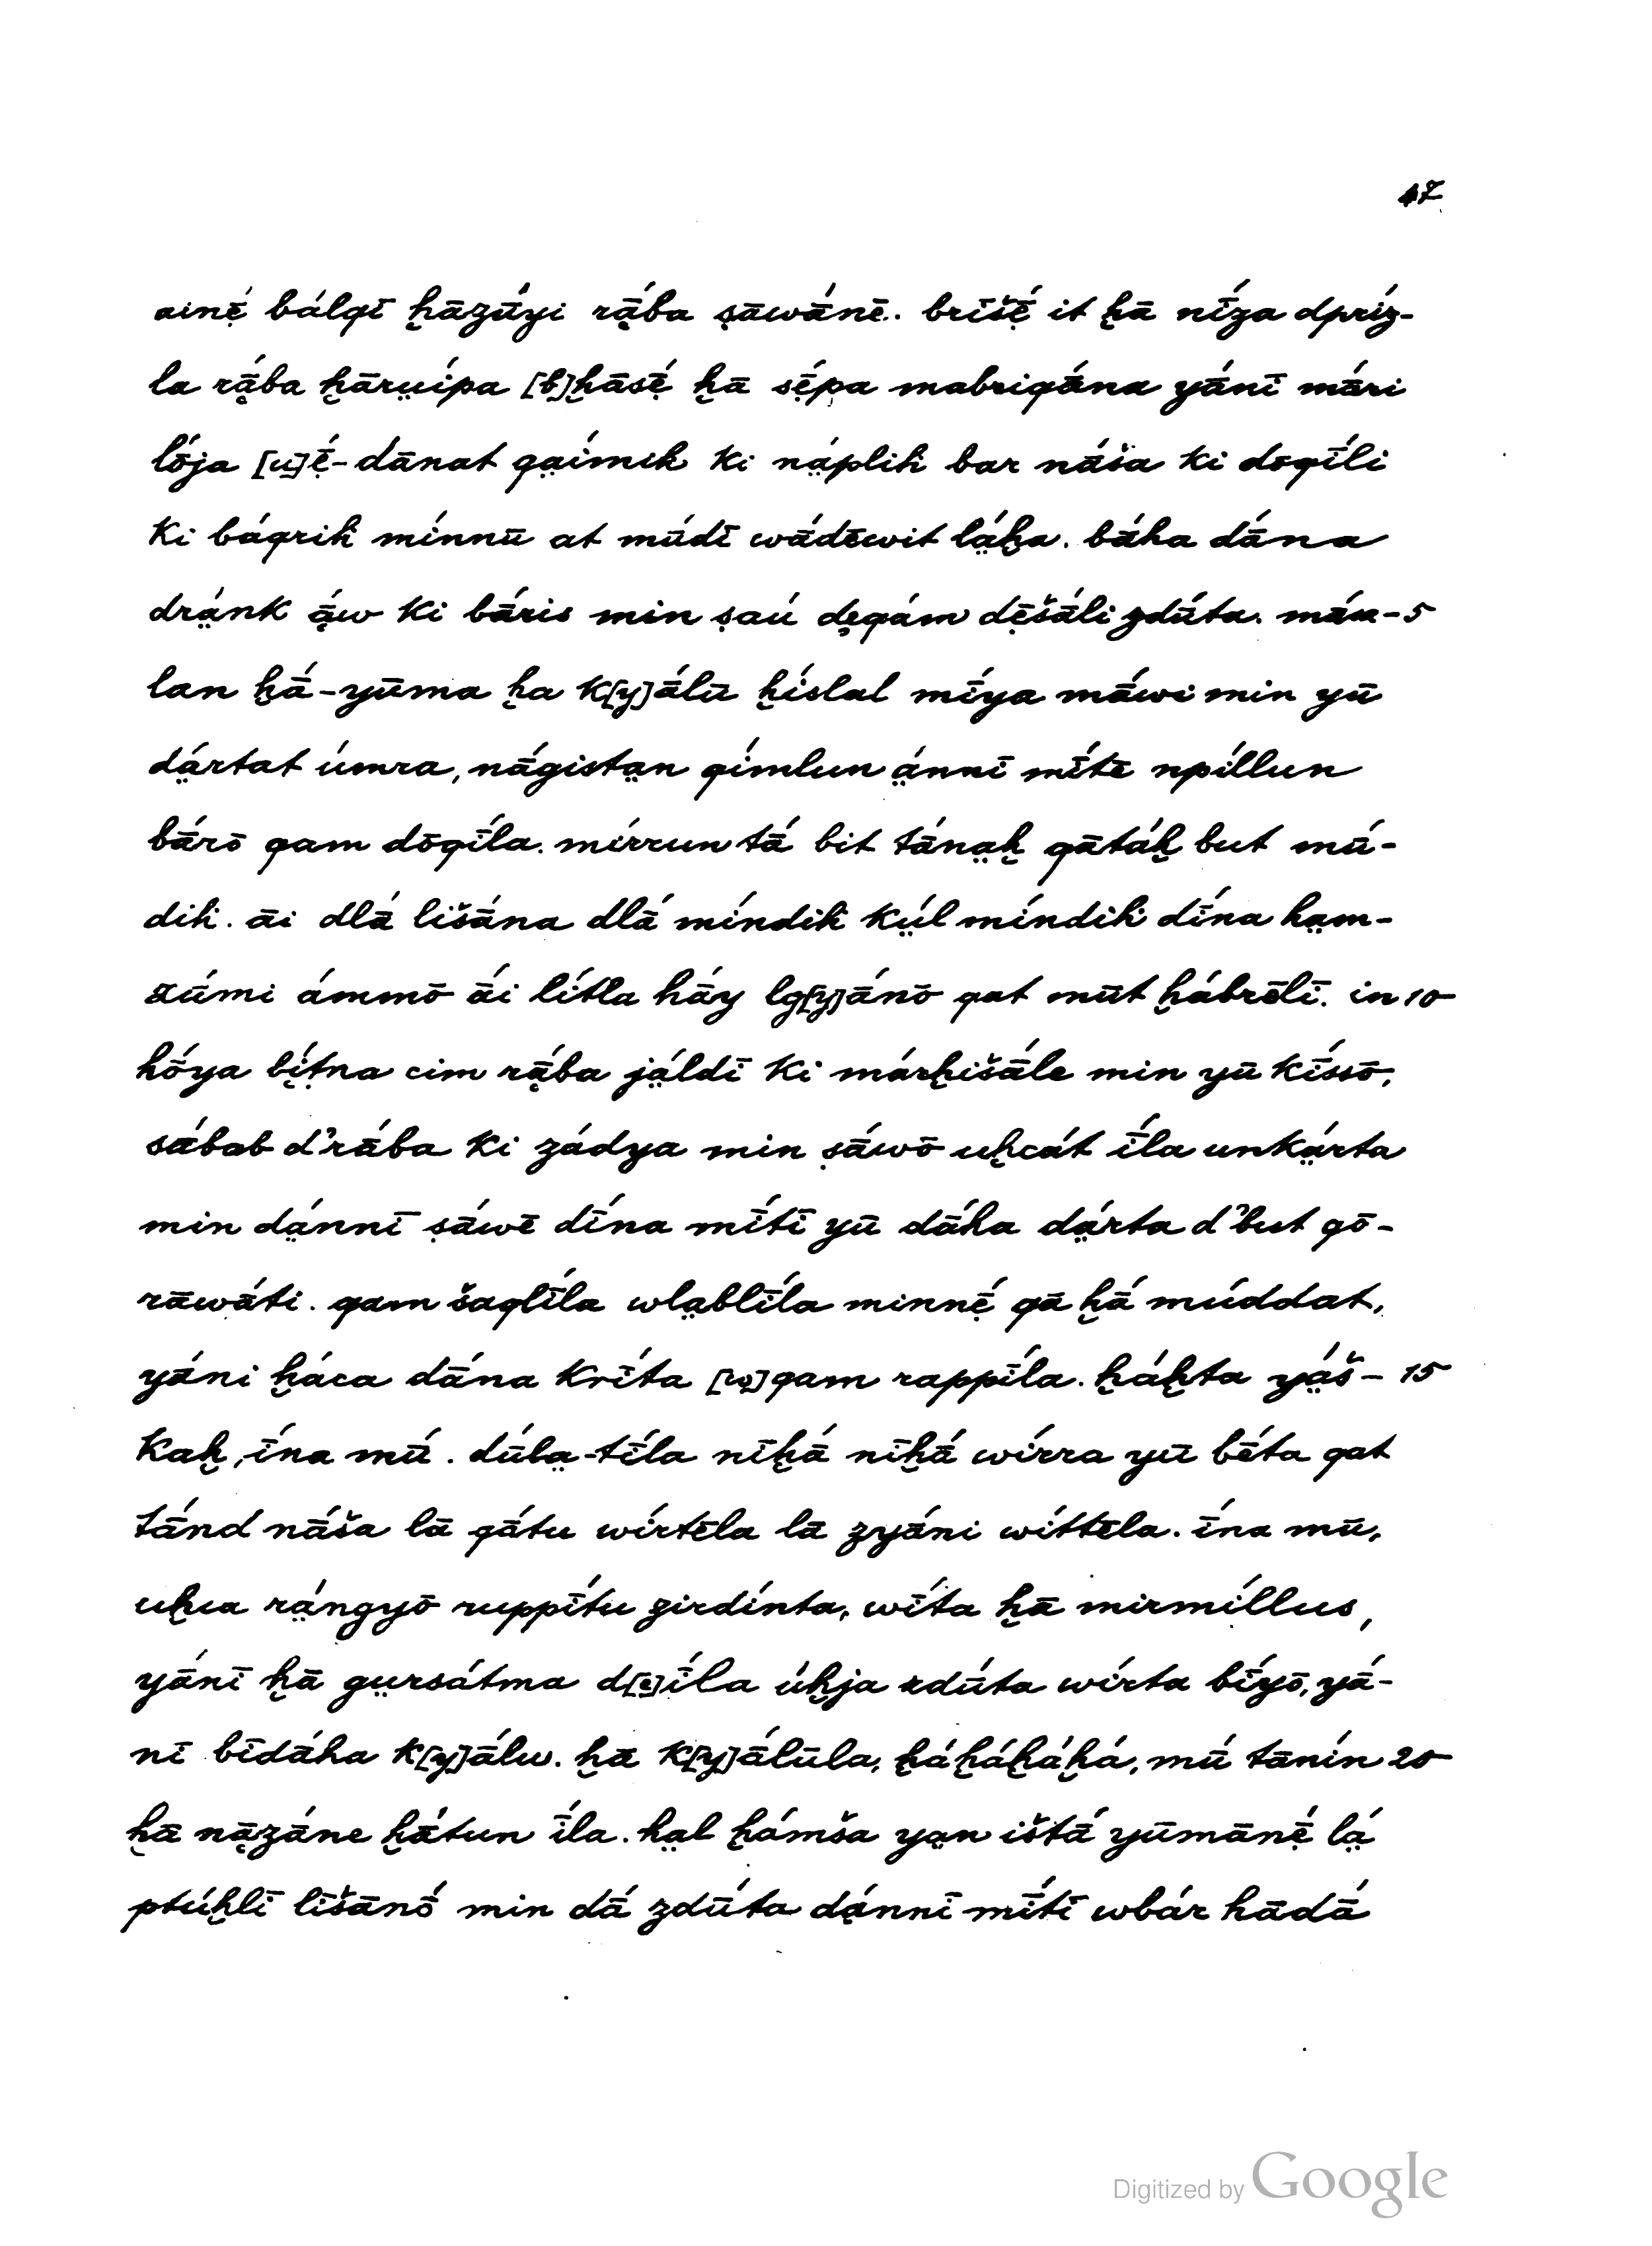 47
ainẹ́ bálqī ḫāzā́yi rā̤́ba ṣāwā́nē. brīšẹ́ it ḫā nī́za dpríz-
la rā̤́ba ḫārṳípa [b]ḫāsẹ́ ḫā sẹ́pa mabriqā́na yā́nī mā́ri
lṓja [u]ẹ́-dānat qa̤ímih ki ná̤plih bar nā́ša ki dōqī́li
ki báqrih mínnū at mū́dī wā́dēwit lá̤ḫa. bā́ha dā́na
drá̤nk ā̤́w ki bā́ris min ṣaú dẹqám dēšā́li zdū́ta. máx- 5
lan ḫā́-yūma ḫa k[y]ā́lū ḫíslal mī́ya mā́wi min yū
dá̤rtat úmra, nā́gista̤n qímlun á̤nnī mī́tē npíllun
bā́rō qam dōqī́la. mírrun tā́ bit tā́na̤ḫ qātáḫ but mū́-
dih. āi dlā́ lišā́na dlā́ míndih kṳ́l míndih dī́na ha̤m-
zū́mi ámmō ā́i lítla hā́y lg[y]ā́nō qat mūt ḫábrēlī. in 10
hṓya bíṭna cim rā̤́ba já̤ldī ki márḫišā́le min yū kī́ssō,
sábab d'rā́ba ki zádya min ṣā́wō uḫcát ī́la unká̤rta
min dá̤nnī ṣā́wē dī́na mī́tī yū dā́ha dá̤rta d'but qō-
rāwā́ti. qam šaqlī́la wla̤blī́la minnẹ́ qā ḫā́ múddat,
yā́ni ḫáca dā́na krī́ta [w]qam rappī́la. ḫáḫta yá̤š- 15
kaḫ, ī́na mū́. dū́la̤-tī́la nīḫā́ nīḫā́ wírra yū bḗta qat
tā́nd nā́ša lā qā́tu wírtēla lā zyā́ni wíttēla. ī́na mū,
uḫca rá̤ngyō ruppī́tu girdínta, wī́ta ḫā mirmíllus,
yā́nī ḫā gṳrsátma d[ẹ]ī́la úḫja zdū́ta wírta bī́yō, yā́-
nī bīdā́ha k[y]ā́lu. ḫā k[y]ā́lūla, ḫáḫáḫáḫá, mū́ tānín 20
ḫā nā̤zā́ne ḫā́tun ī́la. ha̤l ḫámša ya̤n ištā́ yūmānẹ́ lá̤
ptúḫlī līšānṓ min dā́ zdū́ta dá̤nnī mī́tī wbár hādā́
Digitized by Google